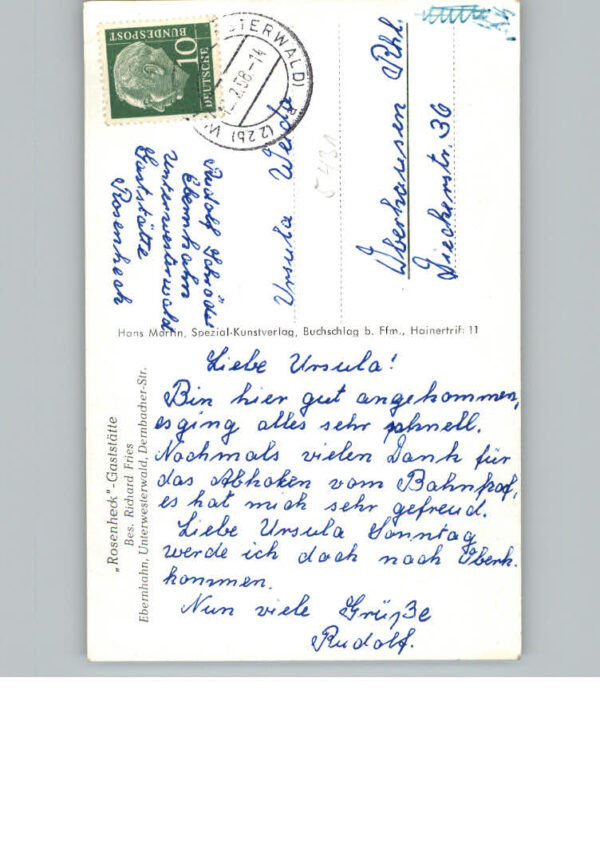 DEUTSCHE BUNDESPOST
10
STERWALD)
.2.58.-14
(22b) W
Rudolf Schröder
Ebernhahn
Unterwesterwald
Gaststätte
Rosenheck
Ursula Werda
5431
Oberhausen Rhl.
36
Hans Martin, Spezial-Kunstverlag, Buchschlag b. Ffm., Hainertrif: 11
„Rosenheck"-Gaststätte
Bes. Richard Fries
Ebernhahn, Unterwesterwald, Dernbacher-Str.
Liebe Ursula!
Bin hier gut angekommen,
es ging alles sehr schnell.
Nochmals vielen Dank für
das Abhohen vom Bahnhof,
es hat mich sehr gefreud.
Liebe Ursula Sonntag
werde ich doch nach Oberh.
kommen.
Nun viele Grüße
Rudolf.